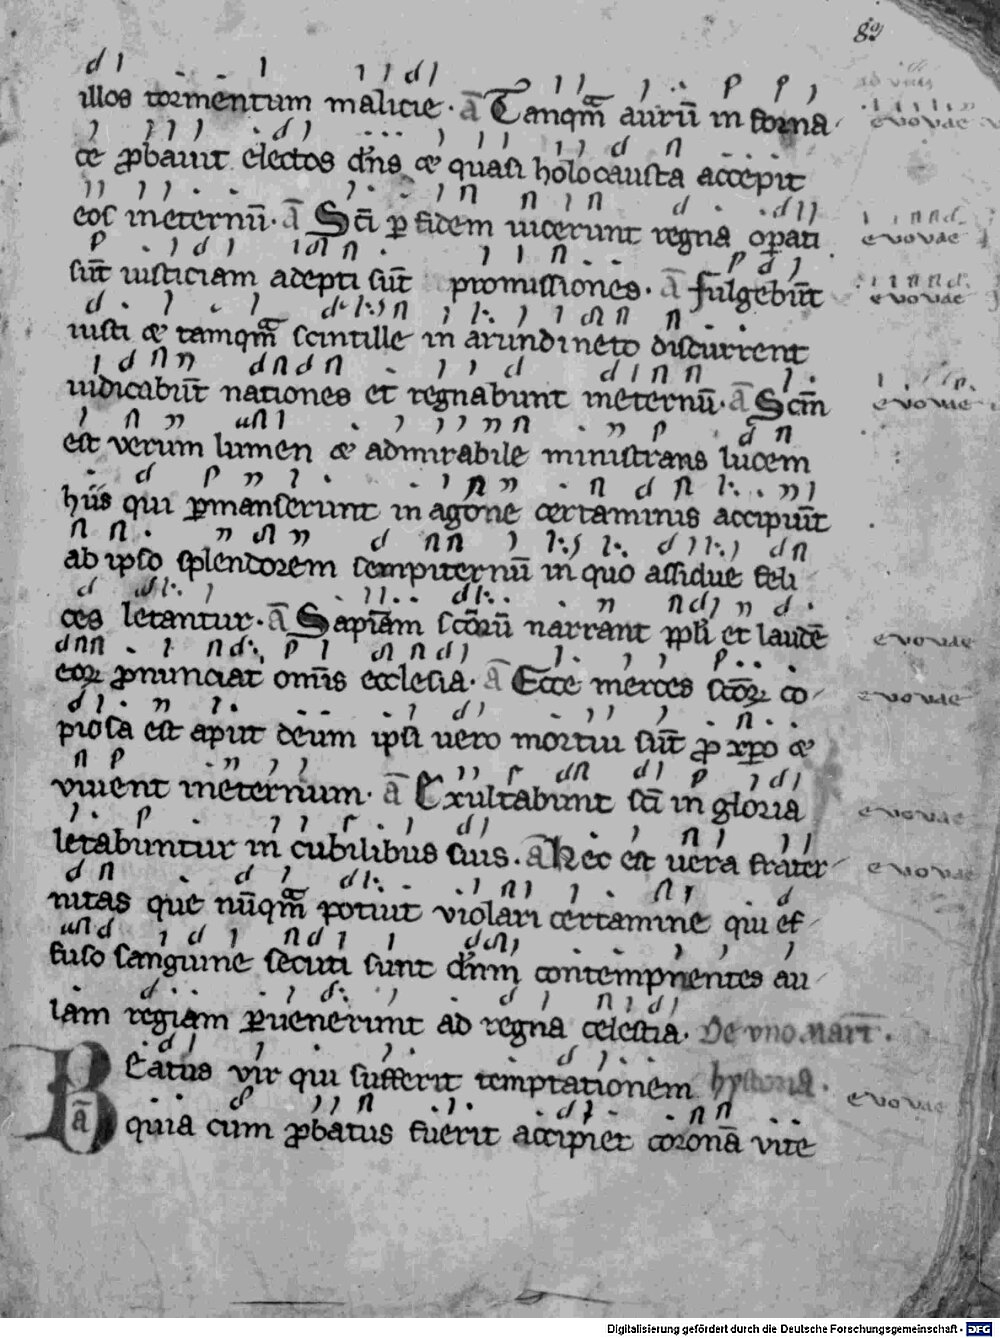 82
illos tormentum malicie. ā Tanqm̄ aurū in forna
ce ꝓbauit electos dn̄s & quasi holocausta accepit
eos ineternū. ā Sc̄i ꝑ fidem uicerunt regna operati
sūt iusticiam adepti sūt promissiones. ā fulgebūt
iusti & tamqm̄ scintille in arundineto discurrent
iudicabūt nationes et regnabunt ineternū. ā Scm̄
est verum lumen & admirabile ministrans lucem
hiis qui ꝑmanserunt in agone certaminis accipiūt
ab ipso splendorem sempiternū in quo assidue feli
ces letantur. ā Sapiam̄ sctoꝝū narrant ppl̄i et laudē
eoꝝ ꝓnunciat omīs ecclesia. ā Ecce merces sctoꝝ co
piosa est aput deum ipsi uero mortui sūt ꝓ xpo &
viuent ineternum. ā Exultabunt sc̄i in gloria
letabuntur in cubilibus suis. ā Hec est uera frater
nitas que nūqm̄ potuit violari certamine qui ef
fuso sanguine secuti sunt dn̄m contempnentes au
lam regiam ꝑuenerunt ad regna celestia. De vno mart̄.
Beatus vir qui sufferit temptationem hystoria.
ā quia cum ꝓbatus fuerit accipiet coronā vite
evovae
evovae
evovae
evovae
evovae
evovae
evovae
evovae
evovae
Digitalisierung gefördert durch die Deutsche Forschungsgemeinschaft - DFG